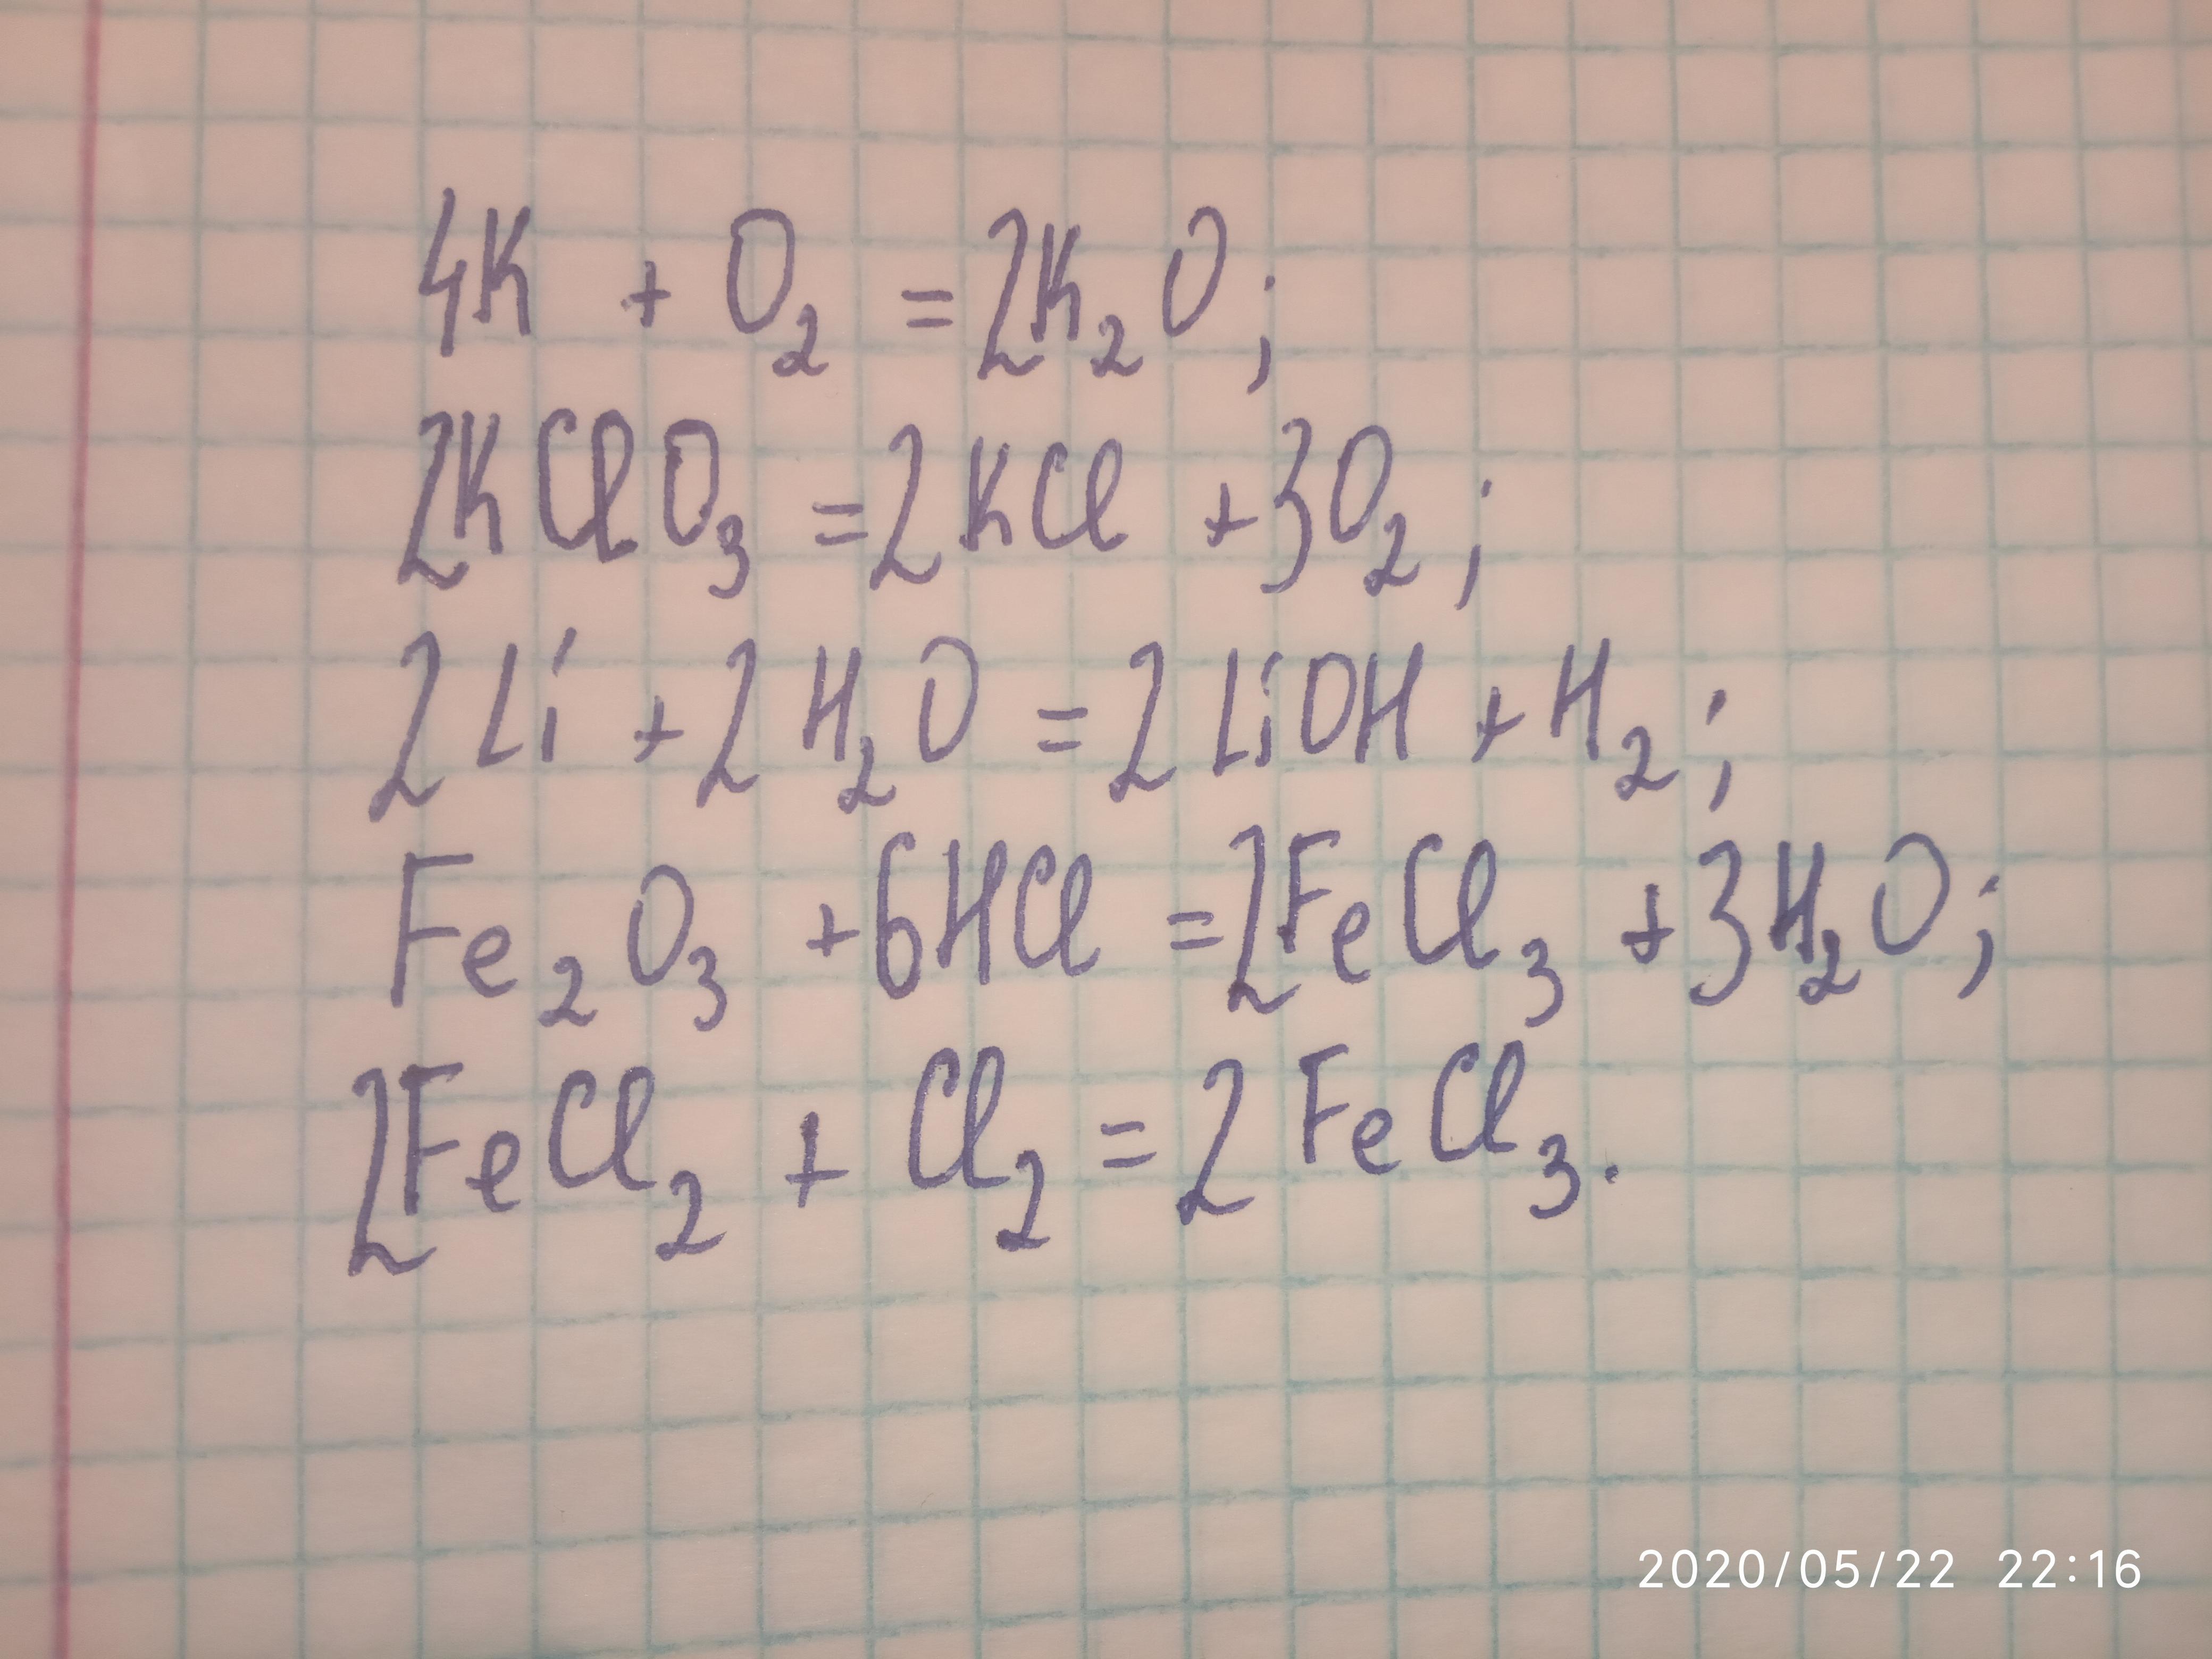 4K + O₂ = 2K₂O;
2KClO₃ = 2KCl + 3O₂;
2Li + 2H₂O = 2LiOH + H₂;
Fe₂O₃ + 6HCl = 2FeCl₃ + 3H₂O;
2FeCl₂ + Cl₂ = 2FeCl₃.
2020/05/22 22:16